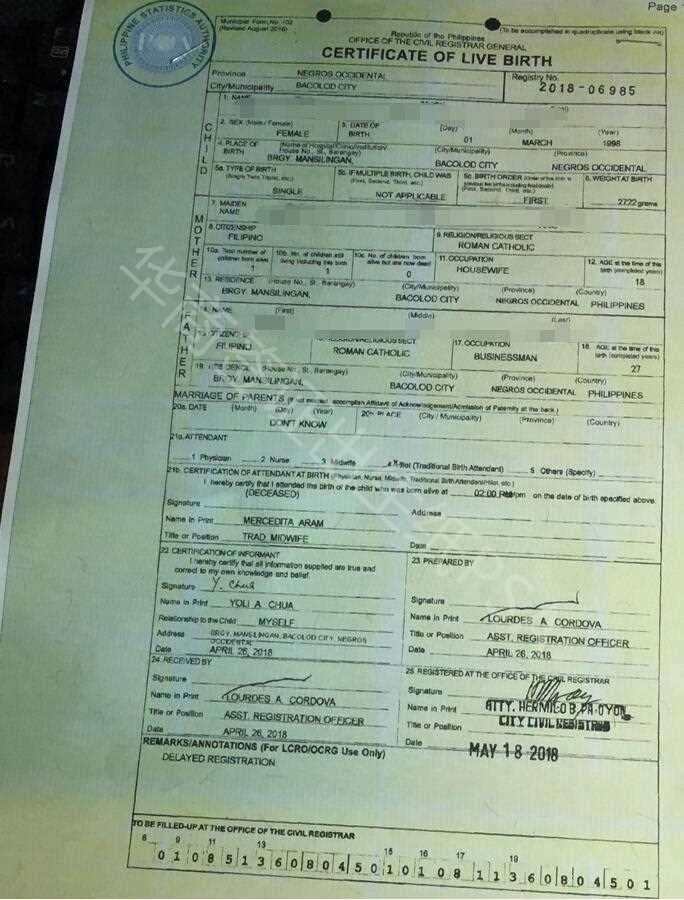 Page
PHILIPPINE STATISTICS AUTHORITY
Municipal Form No. 102
(Revised August 2016)
(To be accomplished in quadruplicate using black ink)
Republic of the Philippines
OFFICE OF THE CIVIL REGISTRAR GENERAL
CERTIFICATE OF LIVE BIRTH
Province NEGROS OCCIDENTAL
City/Municipality BACOLOD CITY
Registry No.
2018-06985
CHILD
1. NAME
2. SEX (Male / Female)
FEMALE
3. DATE OF BIRTH (Day) (Month) (Year)
01 MARCH 1998
4. PLACE OF BIRTH (Name of Hospital/Clinic/Institution/ House No., St., Barangay) (City/Municipality) (Province)
BRGY. MANSILINGAN, BACOLOD CITY NEGROS OCCIDENTAL
5a. TYPE OF BIRTH
(Single, Twin, Triplet, etc.)
SINGLE
5b. IF MULTIPLE BIRTH, CHILD WAS
(First, Second, Third, etc.)
NOT APPLICABLE
5c. BIRTH ORDER
(First, Second, Third, etc.)
FIRST
6. WEIGHT AT BIRTH
2722 grams
MOTHER
7. MAIDEN NAME
8. CITIZENSHIP
FILIPINO
9. RELIGION/RELIGIOUS SECT
ROMAN CATHOLIC
10a. Total number of children born alive
1
10b. No. of children still living including this birth
1
10c. No. of children born alive but are now dead
0
11. OCCUPATION
HOUSEWIFE
12. AGE at the time of this birth (completed years)
18
13. RESIDENCE (House No., St., Barangay) (City/Municipality) (Province) (Country)
BRGY. MANSILINGAN, BACOLOD CITY NEGROS OCCIDENTAL PHILIPPINES
FATHER
14. NAME (First) (Middle) (Last)
15. CITIZENSHIP
FILIPINO
16. RELIGION/RELIGIOUS SECT
ROMAN CATHOLIC
17. OCCUPATION
BUSINESSMAN
18. AGE at the time of this birth (completed years)
27
19. RESIDENCE (House No., St., Barangay) (City/Municipality) (Province) (Country)
BRGY. MANSILINGAN, BACOLOD CITY NEGROS OCCIDENTAL PHILIPPINES
MARRIAGE OF PARENTS (If not married, accomplish Affidavit of Acknowledgement/Admission of Paternity at the back.)
20a. DATE (Month) (Day) (Year)
DON'T KNOW
20b. PLACE (City / Municipality) (Province) (Country)
21a. ATTENDANT
1 Physician 2 Nurse 3 Midwife 4 X Hilot (Traditional Birth Attendant) 5 Others (Specify)
21b. CERTIFICATION OF ATTENDANT AT BIRTH (Physician, Nurse, Midwife, Traditional Birth Attendant/Hilot, etc.)
I hereby certify that I attended the birth of the child who was born alive at 02:00 PM am/pm on the date of birth specified above.
(DECEASED)
Signature
Address
Name in Print MERCEDITA ARAM
Title or Position TRAD. MIDWIFE
Date
22. CERTIFICATION OF INFORMANT
I hereby certify that all information supplied are true and
correct to my own knowledge and belief.
Signature Y. Chua
Name in Print YOLI A. CHUA
Relationship to the Child MYSELF
Address BRGY. MANSILINGAN, BACOLOD CITY, NEGROS
OCCIDENTAL
Date APRIL 26, 2018
23. PREPARED BY
Signature
Name in Print LOURDES A. CORDOVA
Title or Position ASST. REGISTRATION OFFICER
Date APRIL 26, 2018
24. RECEIVED BY
Signature
Name in Print LOURDES A. CORDOVA
Title or Position ASST. REGISTRATION OFFICER
Date APRIL 26, 2018
25. REGISTERED AT THE OFFICE OF THE CIVIL REGISTRAR
Signature
Name in Print ATTY. HERMILO B. PA-OYON
Title or Position CITY CIVIL REGISTRAR
Date MAY 18 2018
REMARKS/ANNOTATIONS (For LCRO/OCRG Use Only)
DELAYED REGISTRATION
TO BE FILLED-UP AT THE OFFICE OF THE CIVIL REGISTRAR
8 9 11 13 15 16 17 19
0 1 0 8 5 1 3 6 0 8 0 4 5 0 1 0 1 0 8 1 1 3 6 0 8 0 4 5 0 1